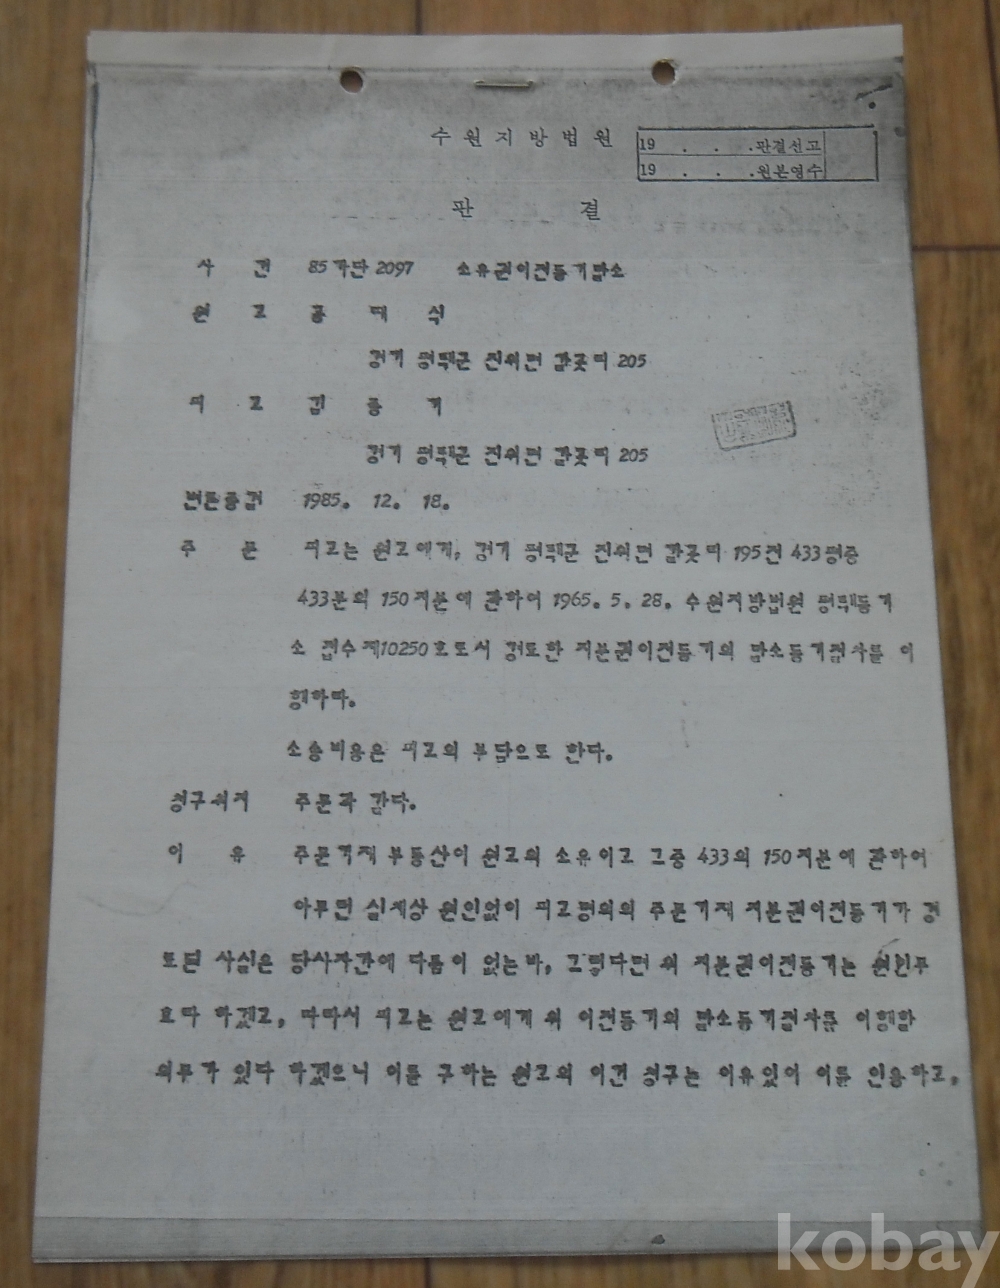 수원지방법원
19 . . .판결선고
19 . . .원본영수
판 결
사 건 85가단2097 소유권이전등기말소
원 고 공 대 식
경기 평택군 진위면 갈곶리 205
피 고 김 종 기
경기 평택군 진위면 갈곶리 205
변론종결 1985. 12. 18.
주 문 피고는 원고에게, 경기 평택군 진위면 갈곶리 195전 433평중
433분의 150지분에 관하여 1965. 5. 28. 수원지방법원 평택등기
소 접수제10250호로서 경료한 지분권이전등기의 말소등기절차를 이
행하라.
소송비용은 피고의 부담으로 한다.
청구취지 주문과 같다.
이 유 주문기재 부동산이 원고의 소유이고 그중 433의 150지분에 관하여
아무런 실체상 원인없이 피고명의의 주문기재 지분권이전등기가 경
료된 사실은 당사자간에 다툼이 없는바, 그렇다면 위 지분권이전등기는 원인무
효라 하겠고, 따라서 피고는 원고에게 위 이전등기의 말소등기절차를 이행할
의무가 있다 하겠으니 이를 구하는 원고의 이건 청구는 이유있어 이를 인용하고,
kobay